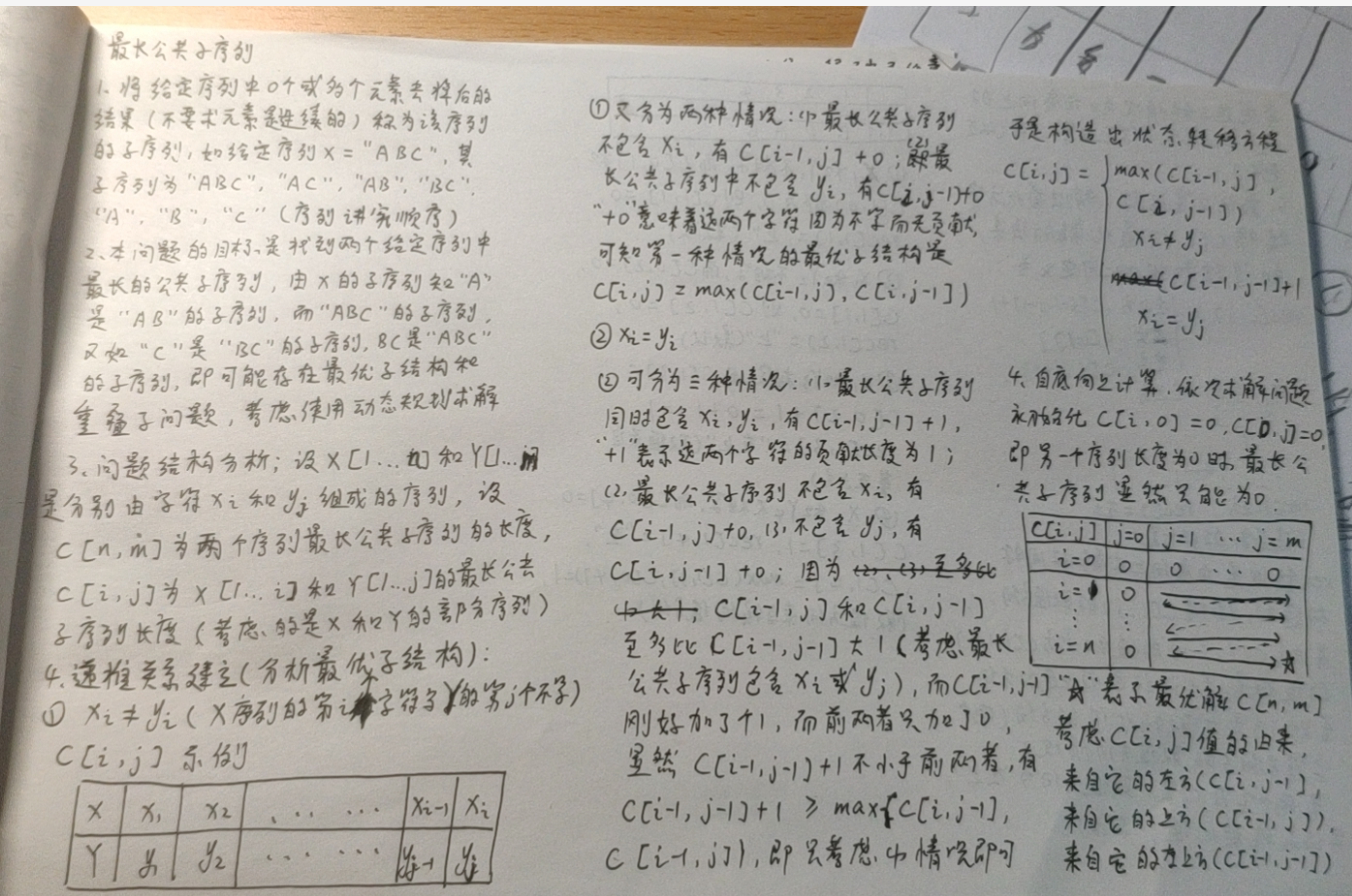 最长公共子序列
1、将给定序列中0个或多个元素去掉后的
结果(不要求元素是连续的)称为该序列
的子序列,如给定序列X="ABC",其
子序列为"ABC","AC","AB","BC",
"A","B","C"(序列讲究顺序)
2、本问题的目标是找到两个给定序列中
最长的公共子序列,由X的子序列知"A"
是"AB"的子序列,而"ABC"的子序列,
又如"C"是"BC"的子序列,BC是"ABC"
的子序列,即可能存在最优子结构和
重叠子问题,考虑使用动态规划求解
3、问题结构分析;设X[1...n]和Y[1...m]
是分别由字符xi和yj组成的序列,设
C[n,m]为两个序列最长公共子序列的长度,
C[i,j]为X[1...i]和Y[1...j]的最长公共
子序列长度(考虑的是X和Y的部分序列)
4、递推关系建立(分析最优子结构):
① xi≠yi(X序列的第i字符与Y的第j个不等)
C[i,j]示例
X x1 x2 ... ... xi-1 xi
Y y1 y2 ... ... yj-1 yj
①又分为两种情况:(1)最长公共子序列
不包含xi,有C[i-1,j]+0;(2)最
长公共子序列中不包含yi,有C[i,j-1]+0
"+0"意味着这两个字符因为不等而无贡献,
可知第一种情况的最优子结构是
C[i,j]=max(C[i-1,j],C[i,j-1])
② xi=yi
②可分为三种情况:(1)最长公共子序列
同时包含xi,yi,有C[i-1,j-1]+1,
"+1"表示这两个字符的贡献长度为1;
(2)最长公共子序列不包含xi,有
C[i-1,j]+0,(3)不包含yj,有
C[i,j-1]+0;因为(2)、(3)至多比
(1)大1,C[i-1,j]和C[i,j-1]
至多比C[i-1,j-1]大1(考虑最长
公共子序列包含xi或yj),而C[i-1,j-1]
刚好加了个1,而前两者只加了0,
显然C[i-1,j-1]+1不小于前两者,有
C[i-1,j-1]+1≥max{C[i,j-1],
C[i-1,j]),即只考虑(1)情况即可
于是构造出状态转移方程
C[i,j]= max(C[i-1,j],
C[i,j-1])
xi≠yj
max(C[i-1,j-1]+1
xi=yj
4、自底向上计算,依次求解问题
初始化C[i,0]=0,C[0,j]=0,
即另一个序列长度为0时,最长公
共子序列显然只能为0.
C[i,j] j=0 j=1 ... j=m
i=0 0 0 ... 0
i=1 0
⋮ ⋮
i=n 0 ☆
"☆"表示最优解C[n,m]
考虑C[i,j]值的由来,
来自它的左方(C[i,j-1],
来自它的上方(C[i-1,j]),
来自它的左上方(C[i-1,j-1])